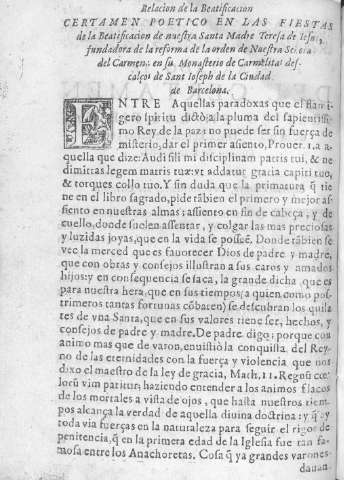 Relacion de la Beatificacion
CERTAMEN POETICO EN LAS FIESTAS
de la Beatificacion de nuestra Santa Madre Teresa de Iesus,
fundadora de la reforma de la orden de Nuestra Señora
del Carmen: en su Monasterio de Carmelitas des-
calços de Sant Ioseph de la Ciudad
de Barcelona.
ENTRE Aquellas paradoxas que el flami
gero spiritu dictò, a la pluma del sapientissi
mo Rey de la paz: no puede ser sin fuerça de
misterio, dar el primer asiento, Prouer. 1. a a
quella que dize: Audi fili mi disciplinam patris tui, & ne
dimittas legem matris tuæ: vt addatur gratia capiti tuo,
& torques collo tuo. Y sin duda que la primatura q̃ tie
ne en el libro sagrado, pide tãbien el primero y mejor as
siento en nuestras almas; assiento en fin de cabeça, y de
cuello, donde suelen assentar, y colgar las mas preciosas
y luzidas joyas, que en la vida se posseẽ. Donde tãbien se
vee la merced que es fauorecer Dios de padre y madre,
que con obras y consejos illustran a sus caros y amados
hijos: y en consequencia se saca, la grande dicha, que es
para nuestra hera, que en sus tiempos (a quien como pos-
trimeros tantas fortunas cõbaten) se descubran los quila
tes de vna Santa, que en sus valores tiene ser, hechos, y
consejos de padre y madre. De padre digo: porque con
animo mas que de varon, enuistiò la conquista del Rey-
no de las eternidades con la fuerça y violencia que nos
dixo el maestro de la ley de gracia, Math. 11. Regnũ cœ-
lorũ vim patitur; haziendo entender a los animos flacos
de los mortales a vista de ojos, que hasta nuestros tiem-
pos alcança la verdad de aquella diuina doctrina: y q̃ ay
toda via fuerças en la naturaleza para seguir el rigor de
penitencia, q̃ en la primera edad de la Iglesia fue tan fa-
mosa entre los Anachoretas. Cosa q̃ ya grandes varones
dauan